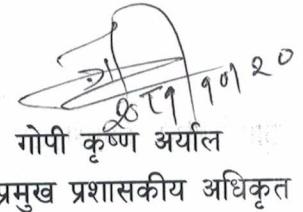 गोपी कृष्ण अर्याल
प्रमुख प्रशासकीय अधिकृत